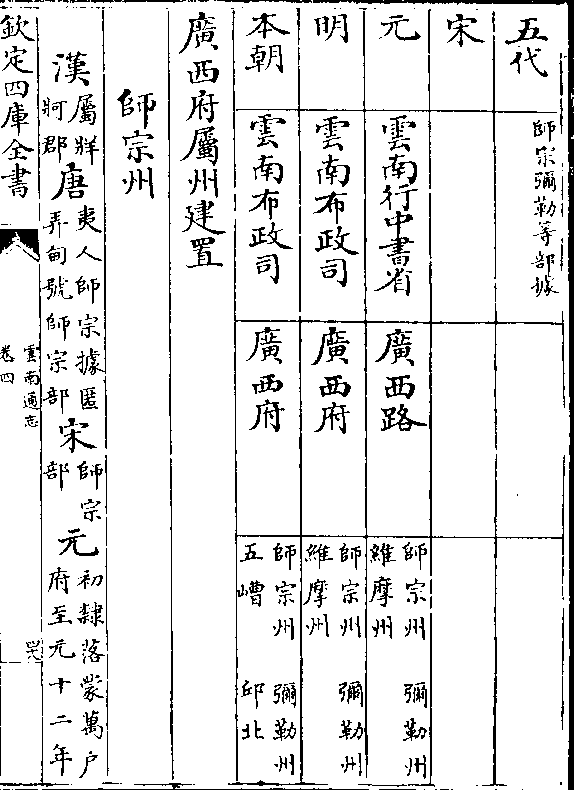 五代
師宗彌勒等部據
宋
元 雲南行中書省 廣西路 師宗州 彌勒州
維摩州
明 雲南布政司 廣西府 師宗州 彌勒州
維摩州
本朝 雲南布政司 廣西府 師宗州 彌勒州
五嶆 邱北
廣西府屬州建置
師宗州
漢屬牂牁郡唐夷人師宗據匿弄甸號師宗部宋師宗部元初隸落蒙萬户府至元十二年
欽定四庫全書
雲南通志
卷四